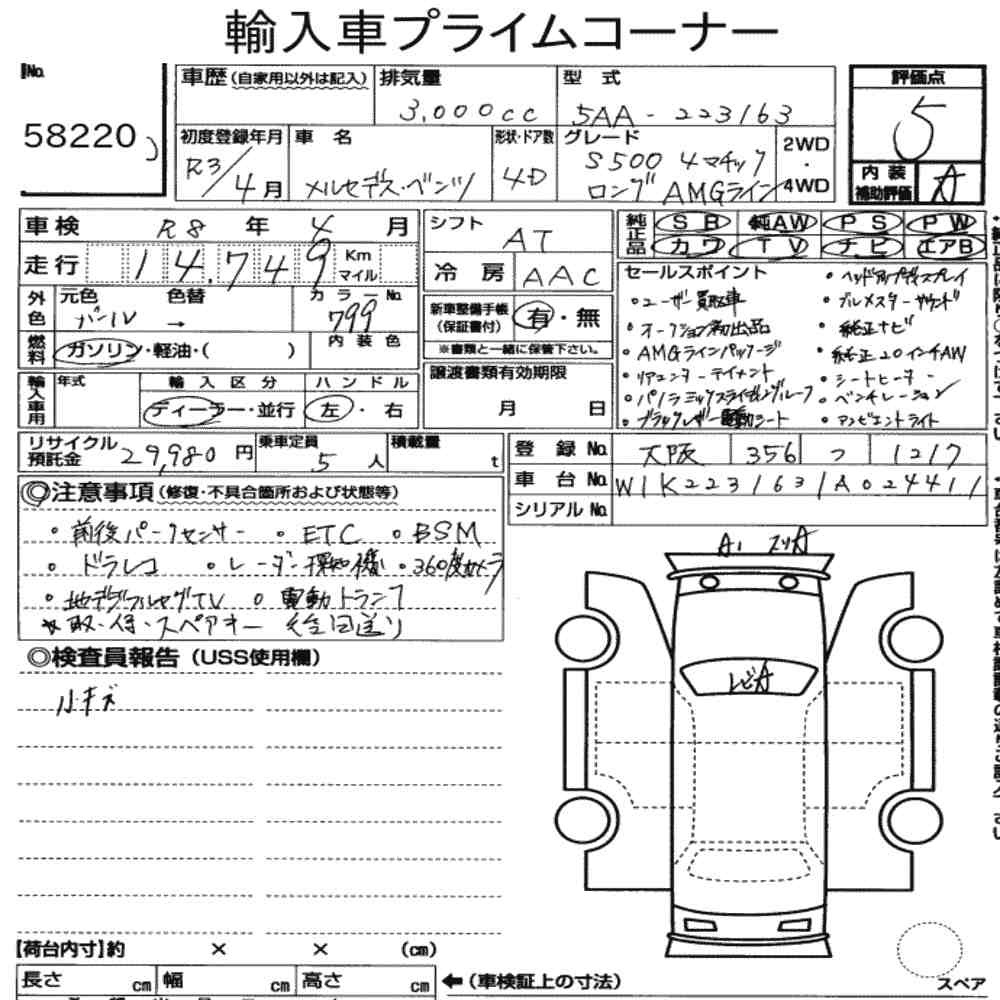 輸入車プライムコーナー
No.
58220
車歴(自家用以外は記入)
排気量
3,000cc
型式
5AA-223163
評価点
5
内装
補助評価
A
初度登録年月
R3/4月
車名
メルセデス・ベンツ
形状・ドア数
4D
グレード
S500 4マチック
ロング AMGライン
2WD
・
4WD
車検 R8年4月
走行 14,749 Km
マイル
シフト
AT
冷房 AAC
純正品
SB 純AW PS PW
カワ TV ナビ エアB
外色
元色 色替
パール →
カラーNo.
799
燃料
ガソリン・軽油・( )
内装色
新車整備手帳
(保証書付)
有・無
※書類と一緒に保管下さい。
輸入車用
年式
輸入区分
ディーラー・並行
ハンドル
左・右
譲渡書類有効期限
月 日
セールスポイント
・ユーザー買取車
・オークション初出品
・AMGラインパッケージ
・リアエンターテイメント
・パノラミックスライディングルーフ
・ブラックレザー電動シート
・ヘッドアップディスプレイ
・ブルメスターサウンド
・純正ナビ
・純正20インチAW
・シートヒーター
・ベンチレーション
・アンビエントライト
リサイクル
預託金
29,980円
乗車定員
5人
積載量
t
登録No. 大阪 356 つ 1217
車台No. W1K2231631A024411
シリアルNo.
◎注意事項(修復・不具合箇所および状態等)
・前後パークセンサー ・ETC ・BSM
・ドラレコ ・レーダー探知機 ・360度カメラ
・地デジフルセグTV ・電動トランク
★取・保・スペアキー 後日送り
◎検査員報告(USS使用欄)
小キズ
A1
スリA
トビA
【荷台内寸】約 × × (cm)
長さ cm 幅 cm 高さ cm
←(車検証上の寸法)
スペア